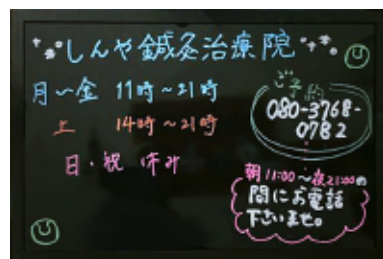 しんや鍼灸治療院
月〜金 11時〜21時
土 14時〜21時
日・祝 休み
ご予約
080-3768-
0782
朝11:00〜夜21:00の
間にお電話
下さいませ。